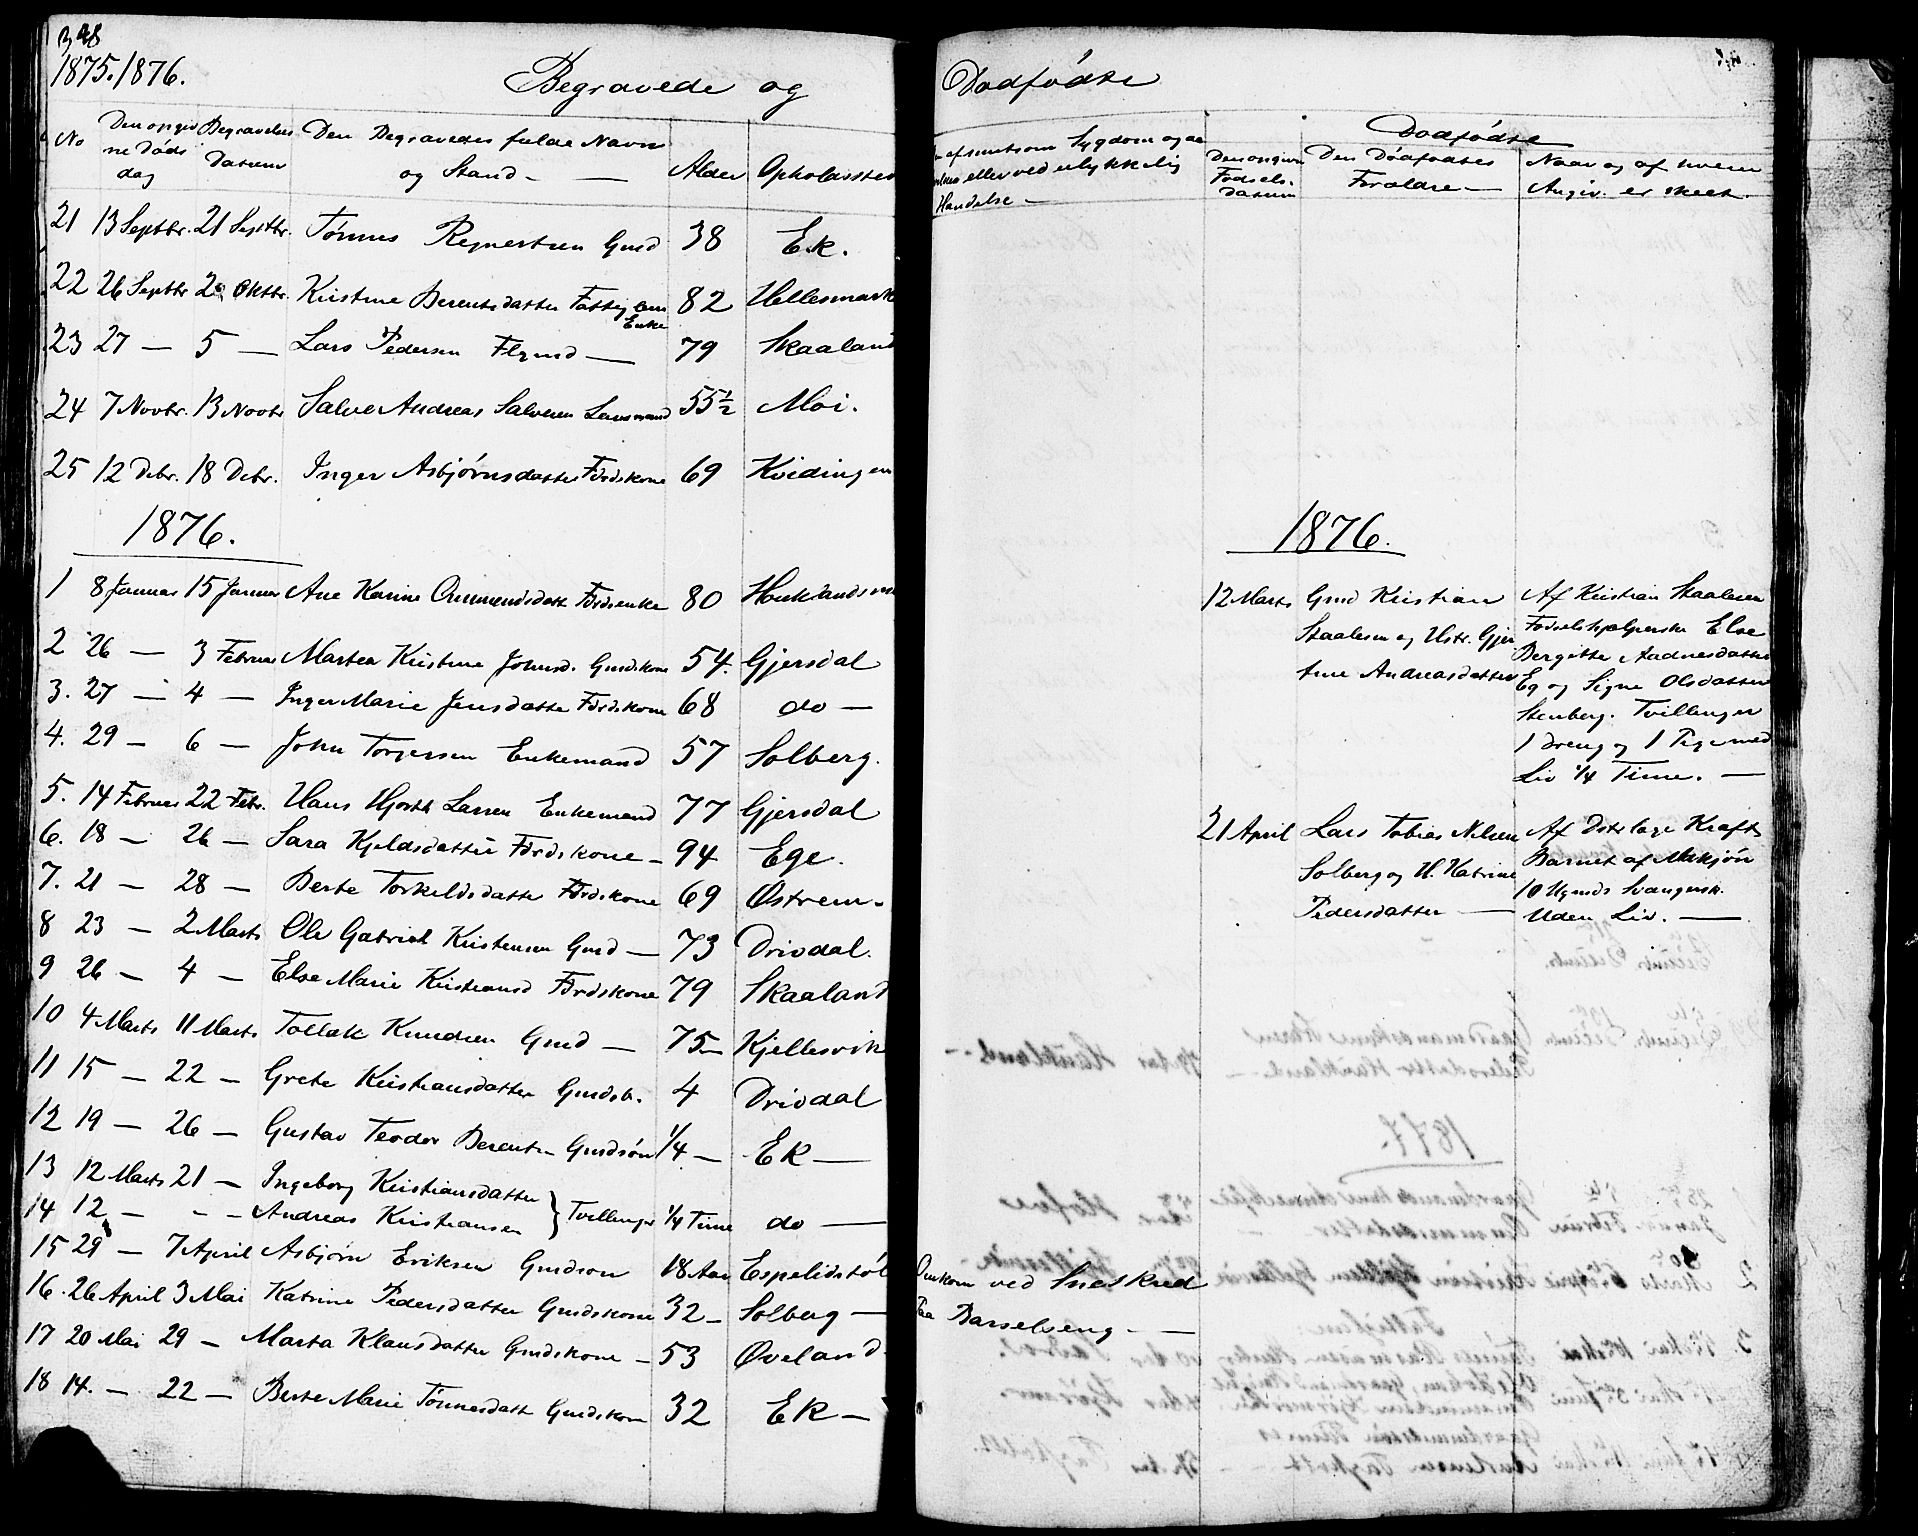 398
1875. 1876.
Begravede og Dødfødte
No
Den opgiv
ne Døds
dag
Begravelses
Datum
Den Begravedes fulde Navn
og Stand —
Alder
Opholdssted
afsmitsom Sygdom og de
eller ved ulykkelig
Handelse —
Dødfødte
Den opgivn
Fødsels-
datum
Den Dødfødtes
Forældre —
Naar og af hvem
Angiv. er skeet.
21 13 Septbr. 21 Septbr. Tønnes Regnertsen Gmd 38 Ek.
22 26 Septbr 2 Oktbr. Kristine Berentsdatter Fattiglem 82 Hellesmark
Enke
23 27 — 5 — Lars Pedersen Flgmd — 79 Skaaland
24 7 Novbr. 13 Novbr Salve Andreas Salvesen Lensmand 55½ Moi.
25 12 Debr. 18 Debr. Inger Asbjørnsdatter Fdrdskone 69 Kvidingen
1876.
1 8 Januar 15 Januar Ane Karine Ommundsdatt Fdrdsenke 80 Hauklandsm
2 26 — 3 Februar Martea Kristine Johnsd. Gmdskone 54. Gjersdal
3. 27 — 4 — Inger Marie Jensdatter Fdrdskone 68 do —
4. 29 — 6 — John Torgersen Enkemand 57 Solberg.
5. 14 Februar 22 Febr. Hans Hjorth Larsen Enkemand 77 Gjersdal
6. 18 — 26 — Sara Kjeldsdatter Fdrdskone — 94 Ege.
7. 21 — 28 — Berte Torkeldsdatter Fdrdskone 69 Østrem.
8 23 — 2 Marts Ole Gabriel Kristensen Gmd — 73 Drivdal.
9 26 — 4 — Else Marie Kristiansd Fdrdskone 79 Skaaland
10 4 Marts 11 Marts Tollak Knudsen Gmd — 75 — Kjellesvik
11 15 — 22 — Grete Kristiansdatter Gmdsb. 4 Drivdal
12 19 — 26 — Gustav Teodor Berents. Gmdsøn ¼ — Ek —
13 12 Marts 21 — Ingeborg Kristiansdatter
14 12 — - - — Andreas Kristiansen } Tvillinger ¼ Time do —
15 29 — 7 April Asbjørn Eriksen Gmdsøn 18 Aar Espelidstøl Omkom ved Sneskred
16. 26 April 3 Mai Katrine Pedersdatter Gmdskone 32 — Solberg — Paa Barselseng. —
17 20 Mai 29 — Marta Klausdatter Gmdskone — 53 Øveland
18 14. — 22 — Berte Marie Tønnesdatt Gmdskone 32 Ek —
1876.
12 Marts Gmd Kristian
Staalesen og Ustr. Gjer
tine Andreasdatter
Af Kristian Staalesen
Fødselshjælperske Else
Bergitte Aadnesdatter
Eg og Signe Olsdatter
Stenberg. Tvillinger
1 Dreng og 1 Pige med
Liv ¼ Time. —
21 April Lars Tobias Nilsen
Solberg og H. Katrine
Pedersdatter —
Af Kraft
Barnet af Mskjøn
10 Ugends Svangersk.
Uden Liv. —